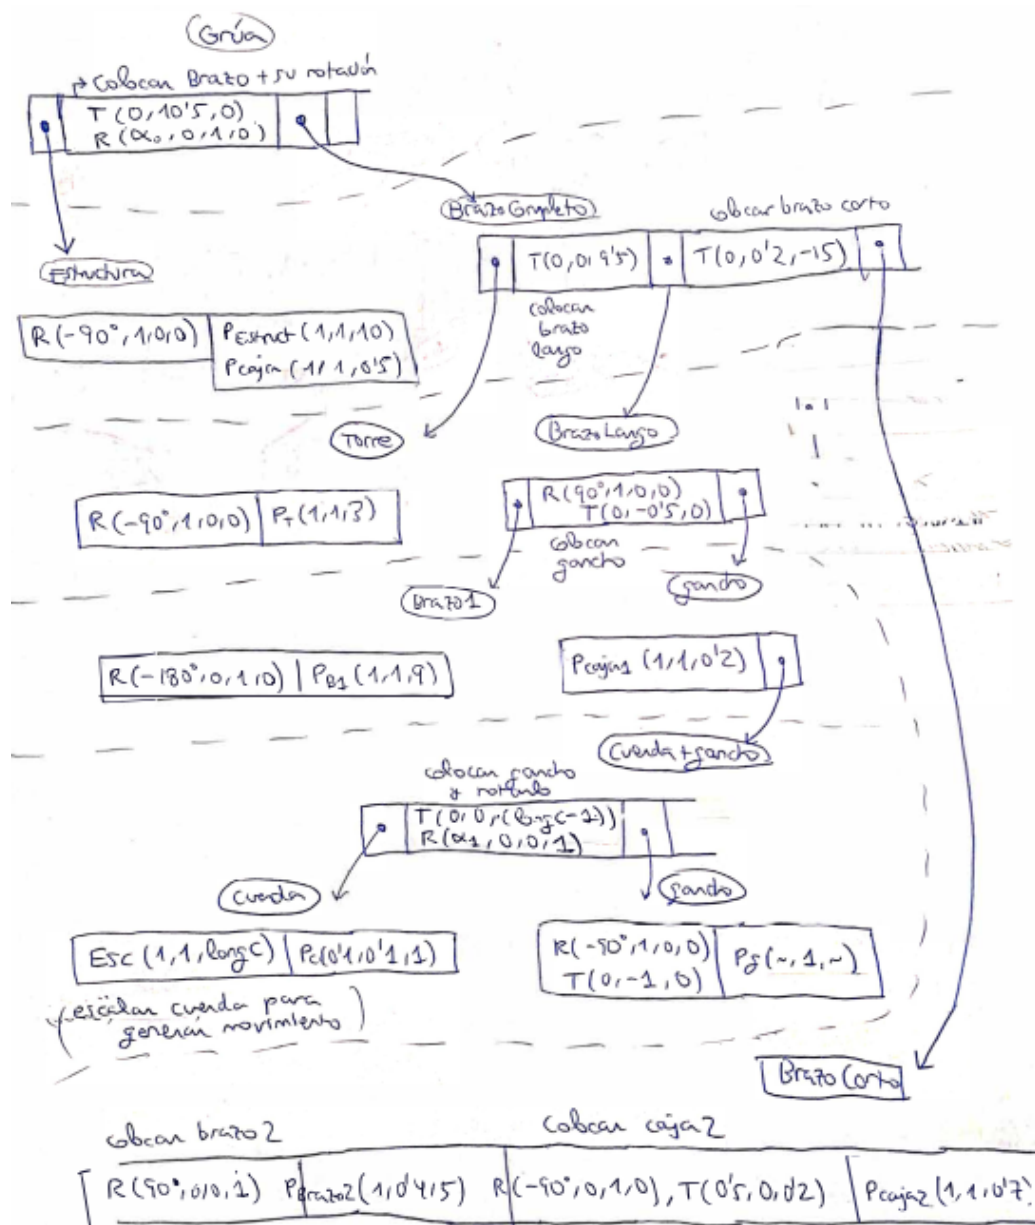 Grúa
Colocar Brazo + su rotación
T(0,10'5,0)
R(α₀,0,1,0)
BrazoCompleto
colocar brazo corto
T(0,0,9'5)
T(0,0'2,-15)
Estructura
colocar
brazo
largo
R(-90°,1,0,0)
PEstruct(1,1,10)
Pcaja(1,1,0'5)
Torre
BrazoLargo
R(-90°,1,0,0)
PT(1,1,3)
R(90°,1,0,0)
T(0,-0'5,0)
colocar
gancho
Brazo1
gancho
R(-180°,0,1,0)
PB1(1,1,9)
Pcaja1(1,1,0'2)
Cuerda+gancho
colocar gancho
y rotarlo
T(0,0,(longC-1))
R(α1,0,0,1)
cuerda
gancho
Esc(1,1,longC)
Pc(0'1,0'1,1)
R(-90°,1,0,0)
T(0,-1,0)
Pg(~,1,~)
(escalar cuerda para
generar movimiento)
Brazo Corto
colocar brazo2
colocar caja2
R(90°,0,0,1) PBrazo2(1,0'4,5) R(-90°,0,1,0), T(0'5,0,0'2) Pcaja2(1,1,0'7)